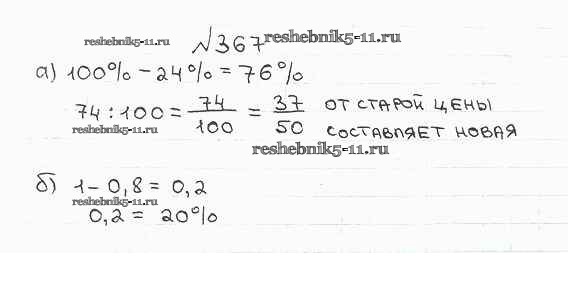 reshebnik5-11.ru №367 reshebnik5-11.ru
а) 100% - 24% = 76%
74 : 100 = 74/100 = 37/50 ОТ СТАРОЙ ЦЕНЫ
reshebnik5-11.ru СОСТАВЛЯЕТ НОВАЯ
reshebnik5-11.ru
б) 1 - 0,8 = 0,2
reshebnik5-11.ru
0,2 = 20%